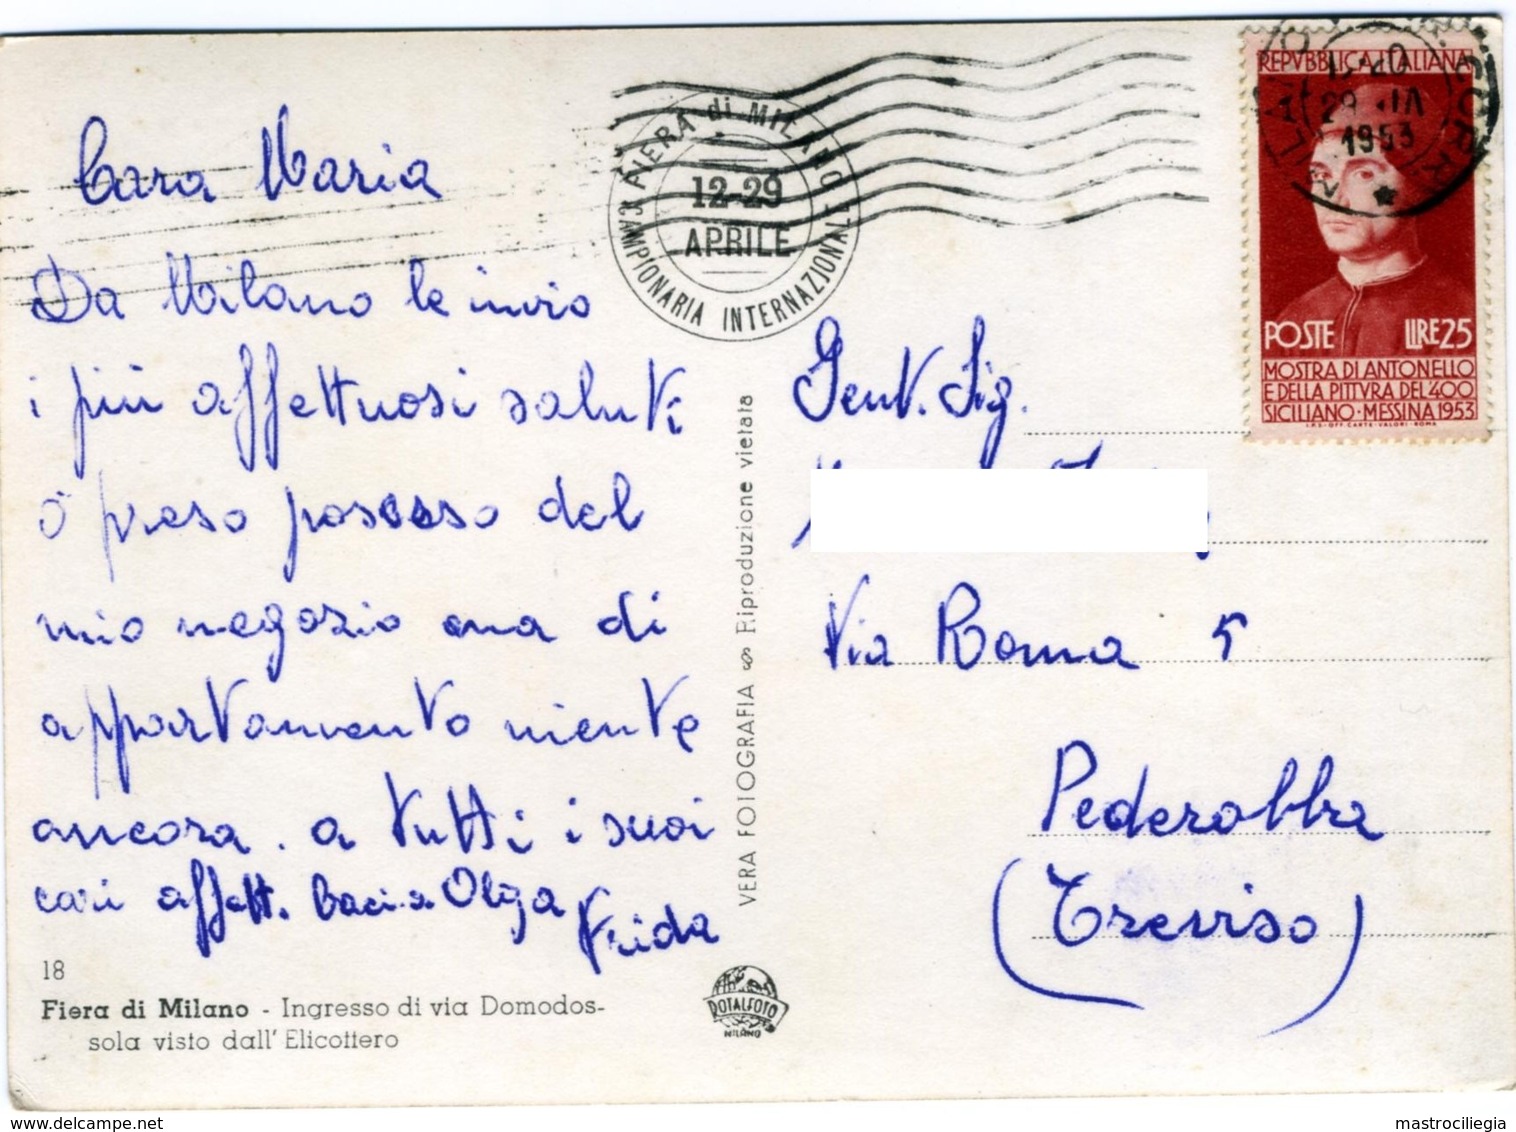 Cara Maria
Da Milano le invio
i più affettuosi saluti
ò preso possesso del
mio negozio ma di
appartamento niente
ancora. a tutti i suoi
cari affett. baci a Olga
Frida
18
Fiera di Milano - Ingresso di via Domodos-
sola visto dall' Elicottero
VERA FOTOGRAFIA Riproduzione vietata
ROTALFOTO
MILANO
FIERA di MILANO
12-29
APRILE
CAMPIONARIA INTERNAZIONALE
REPVBBLICA ITALIANA
1953
POSTE LIRE 25
MOSTRA DI ANTONELLO
E DELLA PITTVRA DEL 400
SICILIANO · MESSINA 1953
I.P.S. - OFF. CARTE - VALORI - ROMA
Gent. Sig.
Via Roma 5
Pederobba
(Treviso)
mastrociliegia
www.delcampe.net